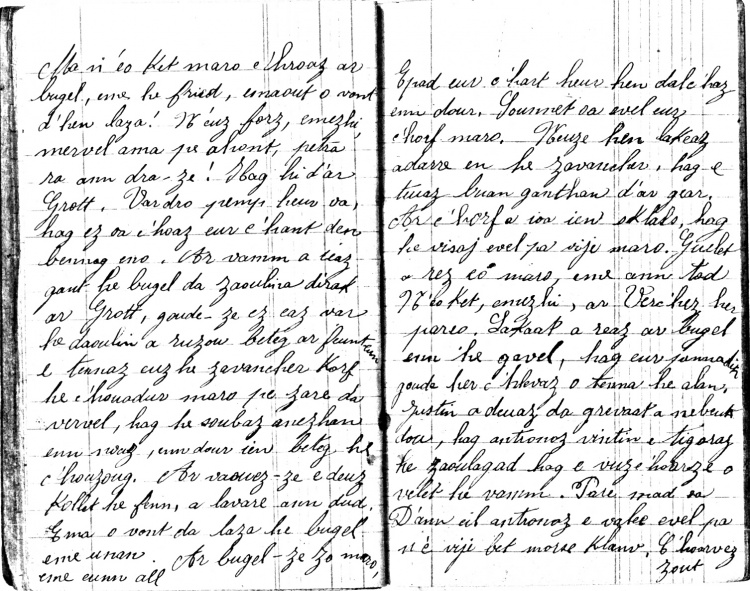 Ma n'éo Ket maro c'hroaz ar
bugel, eme he fried, emaout o vont
d'hen laza! N'euz forz, emezhi,
mervel ama pe ahont, petra
ra ann dra-ze! Hag hi d'ar
Grott. Var dro pemp heur va,
hag ez oa c'hoaz eur c'hant den
bennag eno. Ar vamm a ieaz
gant he bugel da zaoulina dirak
ar Grott, goude-ze ez eaz var
he daoulin a ruzou beteg ar feunteun
e tennaz euz he zavancher Korf
he c'hrouadur maro pe zare da
vervel, hag he soubaz anezhan
enn noaz, enn dour ien beteg he
c'houzoug. Ar vaouez-ze e deuz
Kollet he fenn, a lavare ann dud.
Ema o vont da laza he bugel
eme unan. Ar bugel-ze zo maro,
eme eunn all
Epad eur c'hart heur hen dalc'haz
enn dour. Sounnet oa evel eur
c'horf maro. Neuze hen lakeaz
adarre en he zavancher, hag e
tizaz buan ganthan d'ar gear.
Ar c'horf a ioa ien sklas, hag
he visaj evel pa vije maro. Guelet
a rez eo maro, eme ann tad
N'éo Ket, emezhi, ar Verchez her
pareo. Lakaat a reaz ar bugel
enn he gavel, hag eur pennadik
goude her c'hlevaz o tenna he alan.
Justin a deuaz da grevaat a nebeut
dou, hag antronoz vintin e tigoraz
he zaoulagad hag e vuze c'hoarze o
velet he vamm. Pare mad oa
D'ann eil antronoz e valee evel pa
n'e vije bet morse klanv. C'hoarvez
zout